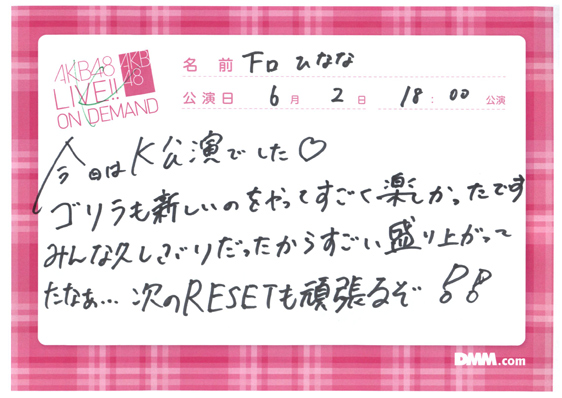 AKB48
LIVE!!
ON DEMAND
AKB
48
名前 下口ひなな
公演日 6月2日 18:00公演
今日はK公演でした♡
ゴリラも新しいのをやってすごく楽しかったです
みんな久しぶりだったからすごい盛り上がって
たなぁ…次のRESETも頑張るぞ!!
DMM.com